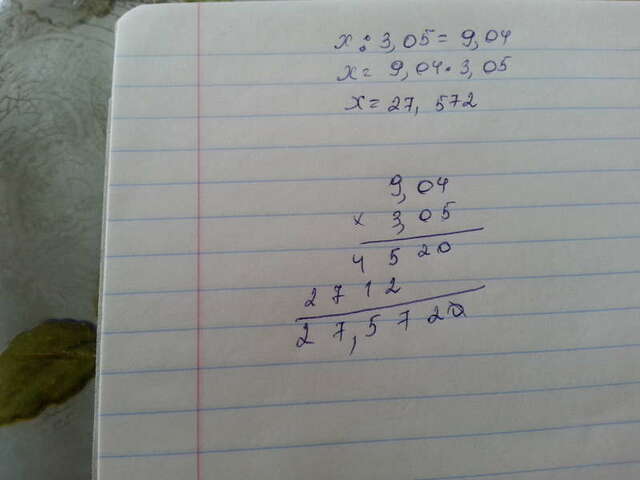 x : 3,05 = 9,04
x = 9,04 · 3,05
x = 27, 572
9,04
x 3,05
4 5 2 0
2 7 1 2
2 7,5 7 2 0